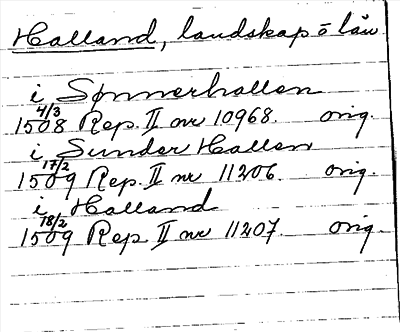 Halland, landskap o län
i Sønnerhallen
4/3
1508 Rep. II nr 10968. orig.
i Sunder Hallen
17/2
1509 Rep. II nr 11206. orig.
i Halland
18/2
1509 Rep. II nr 11207. orig.